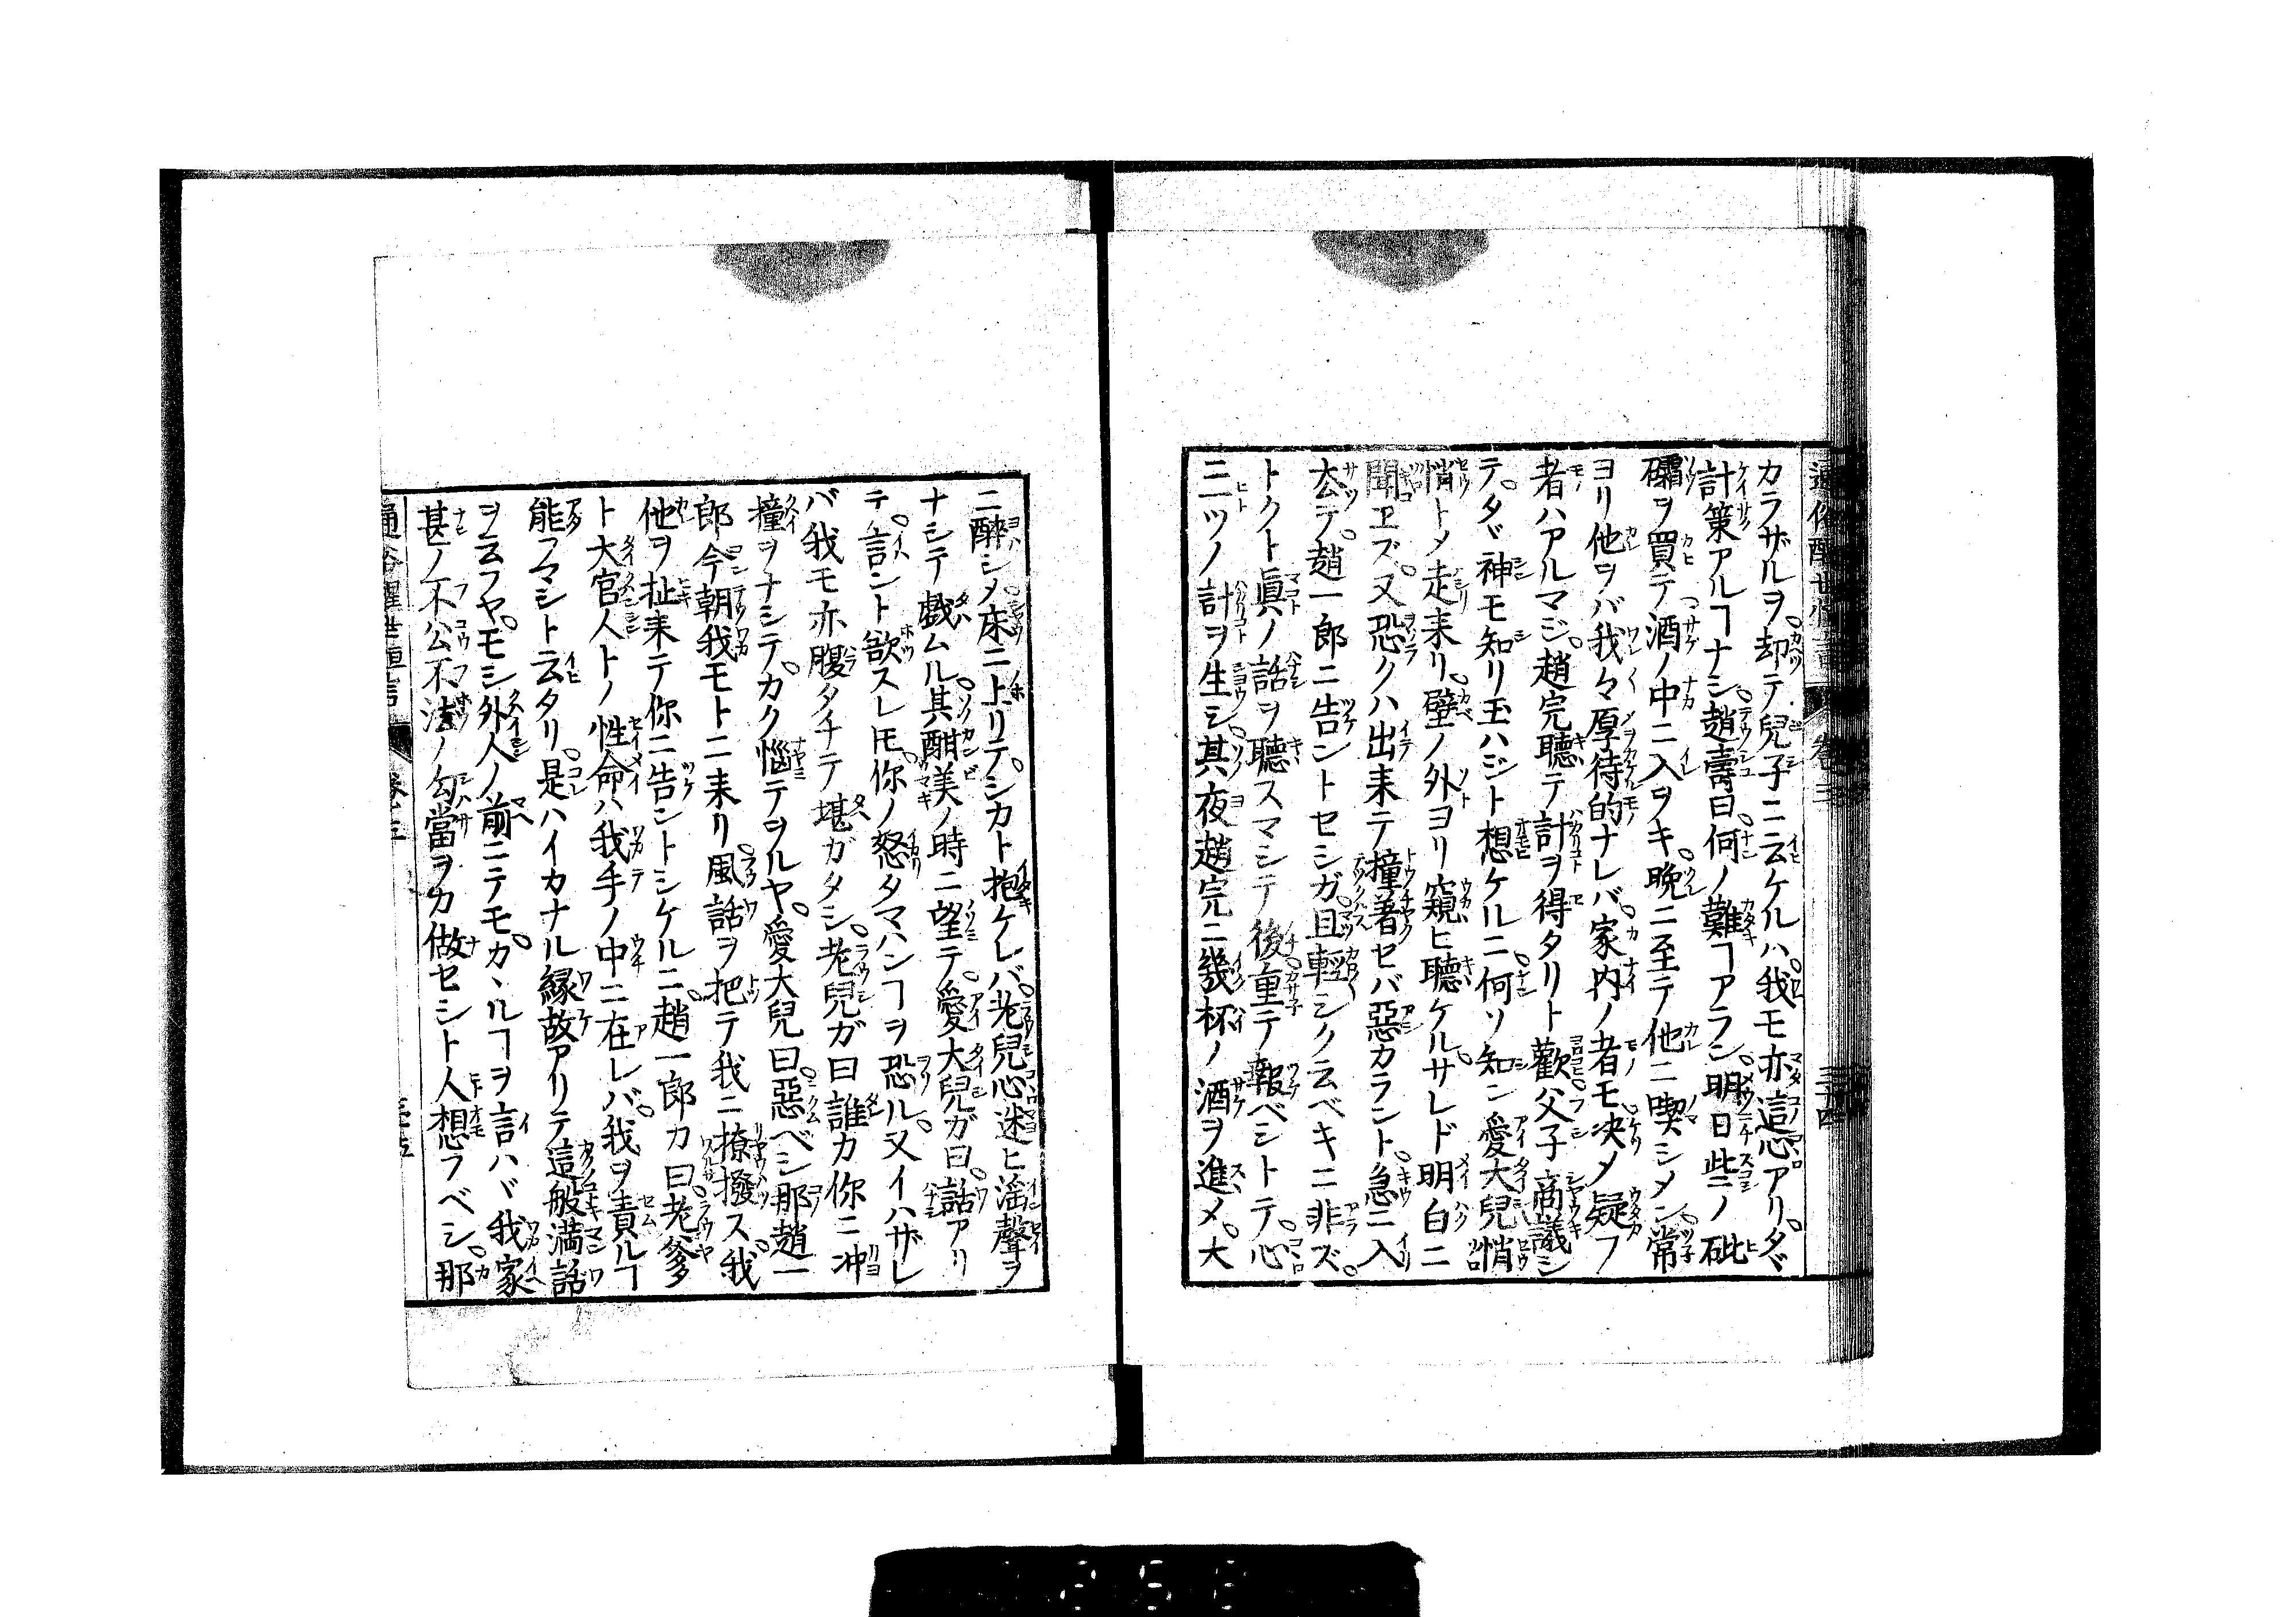 通俗醒世恒言 卷三 三十四
カラザルヲ。却テ兒子ニ云ケルハ。我モ亦這心アリ。タヾ
計策アルヿナシ。趙壽曰。何ノ難ヿアラン。明日些ノ砒
礵ヲ買テ。酒ノ中ニ入ヲキ。晩ニ至テ他ニ喫シメン。常
ヨリ他ヲバ我々厚待的ナレバ。家内ノ者モ决メ疑フ
者ハアルマジ。趙完聽テ計ヲ得タリト歡。父子商議シ
テ。タヾ神モ知リ玉ハジト想ケルニ。何ソ知ン愛大兒悄
悄トメ走来リ。壁ノ外ヨリ窺ヒ聽ケル。サレド明白ニ
聞ヱズ。又恐クハ出来テ撞着セバ惡カラント。急ニ入
去テ。趙一郎ニ告ントセシガ。且輕シク云ベキニ非ズ。
トクト眞ノ話ヲ聽スマシテ後。重テ報ベシトテ。心
ニ一ツノ計ヲ生シ。其夜趙完ニ幾杯ノ酒ヲ進メ。大
ニ醉シメ。床ニ上リテ。シカト抱ケレバ。老兒心迷ヒ滛聲ヲ
ナシテ戯ムル。其酣美ノ時ニ望テ。愛大兒ガ曰。話アリ
テ。言ント欲スレ𪜈。你ノ怒タマハンヿヲ恐ル。又イハザレ
バ我モ亦腹タチテ堪ガタシ。老兒ガ曰誰カ你ニ冲
撞ヲナシテ。カク惱テヲルヤ。愛大兒曰。惡ベシ那趙一
郎。今朝我モトニ来リ。風話ヲ把テ我ニ撩撥ス。我
他ヲ扯来テ你ニ告ントシケルニ。趙一郎カ曰。老爹
ト大官人トノ性命ハ我手ノ中ニ在レバ。我ヲ責ルヿ
能フマシト云タリ。是ハイカナル縁故アリテ這般満話
ヲ云フヤ。モシ外人ノ前ニテモ。カヽルヿヲ言ハヾ我家
甚ノ不公不法ノ勾當ヲカ做セシト人想フベシ。那
通俗醒世恒言 卷三 三十五